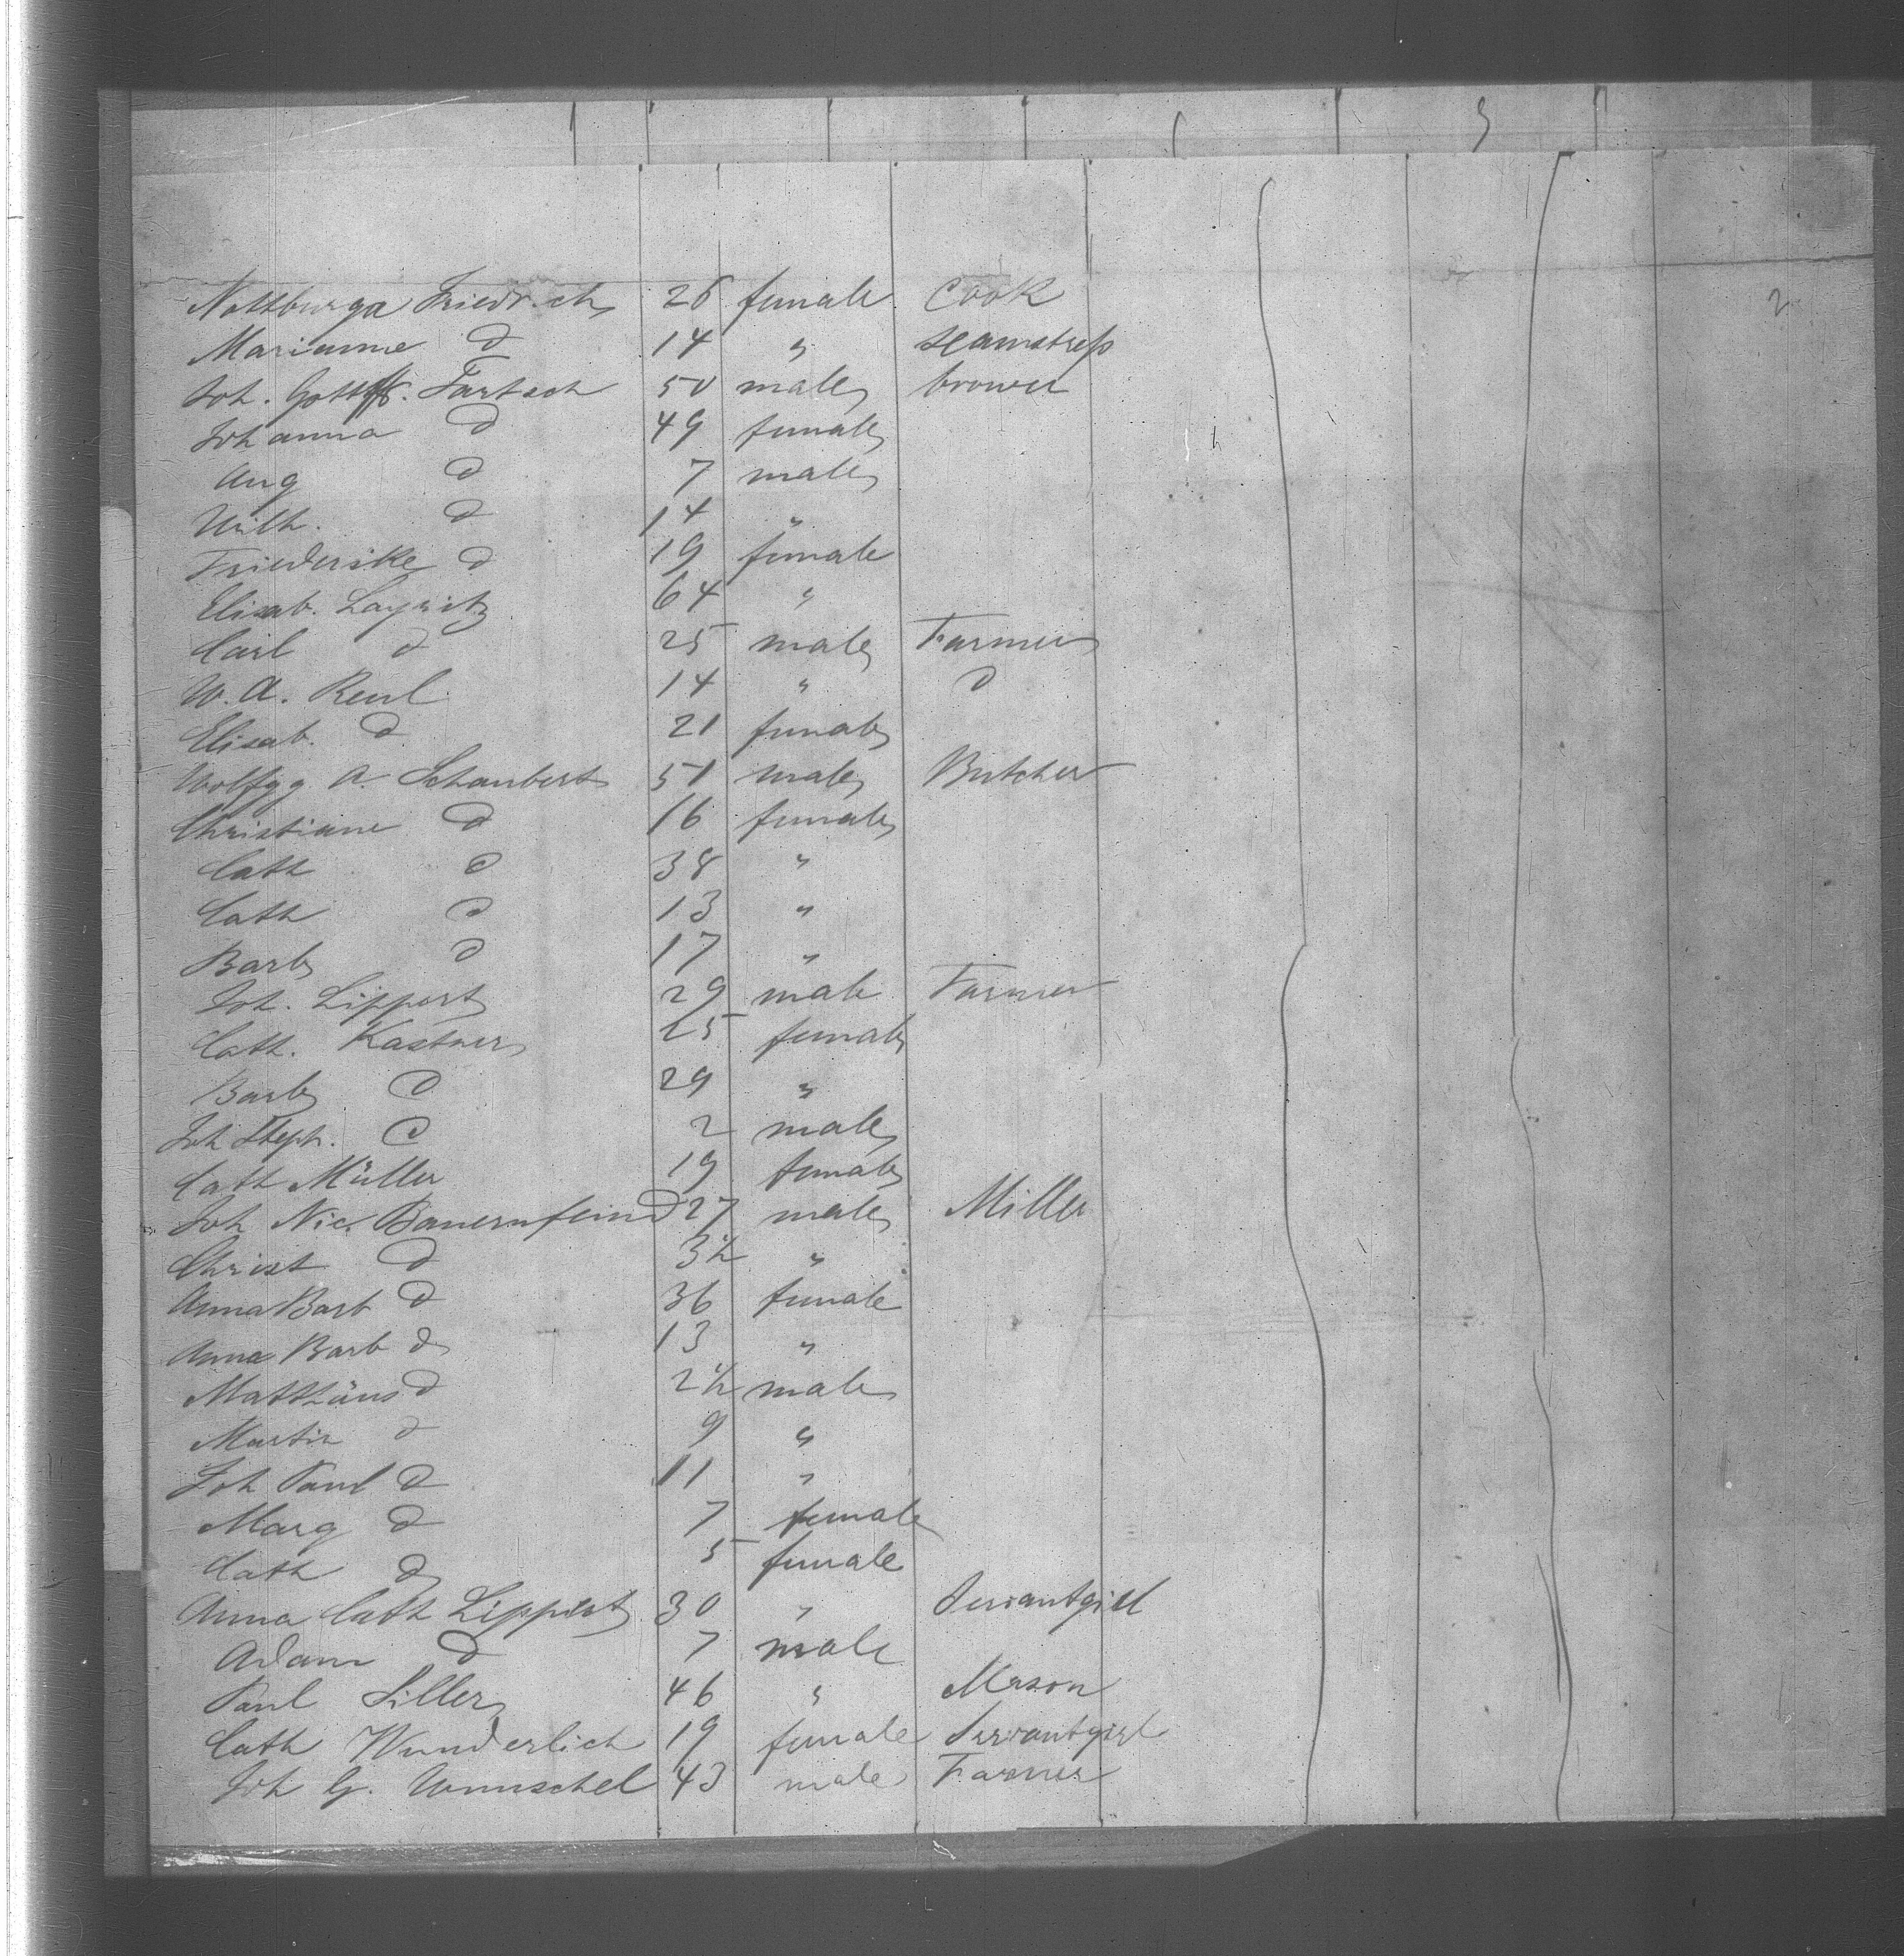 2
Nottburga Friedrich 26 female Cook
Marianne d 14 " seamstress
Joh. Gottfr. Fartsch 50 male brower
Johanna d 49 female
Aug d 7 male
Wilh. d 14 "
Friederike d 19 female
Elisab. Layritz 64 "
Carl d 25 male Farmer
W. A. Reul 14 " d
Elisab. d 21 female
Wolfgg. A. Schaubert 51 male Butcher
Christiane d 16 female
Cath d 38 "
Cath d 13 "
Barb d 17 "
Joh. Lippert 29 male Farmer
Cath. Kastner 25 female
Barb d 29 "
Joh Steph. d 2 male
Cath Müller 19 female
Joh Nic. Bauernfeind 27 male Miller
Christ d 3½ "
Anna Barb d 36 female
Anna Barb d 13 "
Matthäus d 2½ male
Martin d 9 "
Joh Paul d 11 "
Marg d 7 female
Cath d 5 female
Anna Cath Lippert 30 " Servantgirl
Adam d 7 male
Paul Siller 46 " Mason
Cath Wunderlich 19 female Servantgirl
Joh G. Wunschel 43 male Farmer